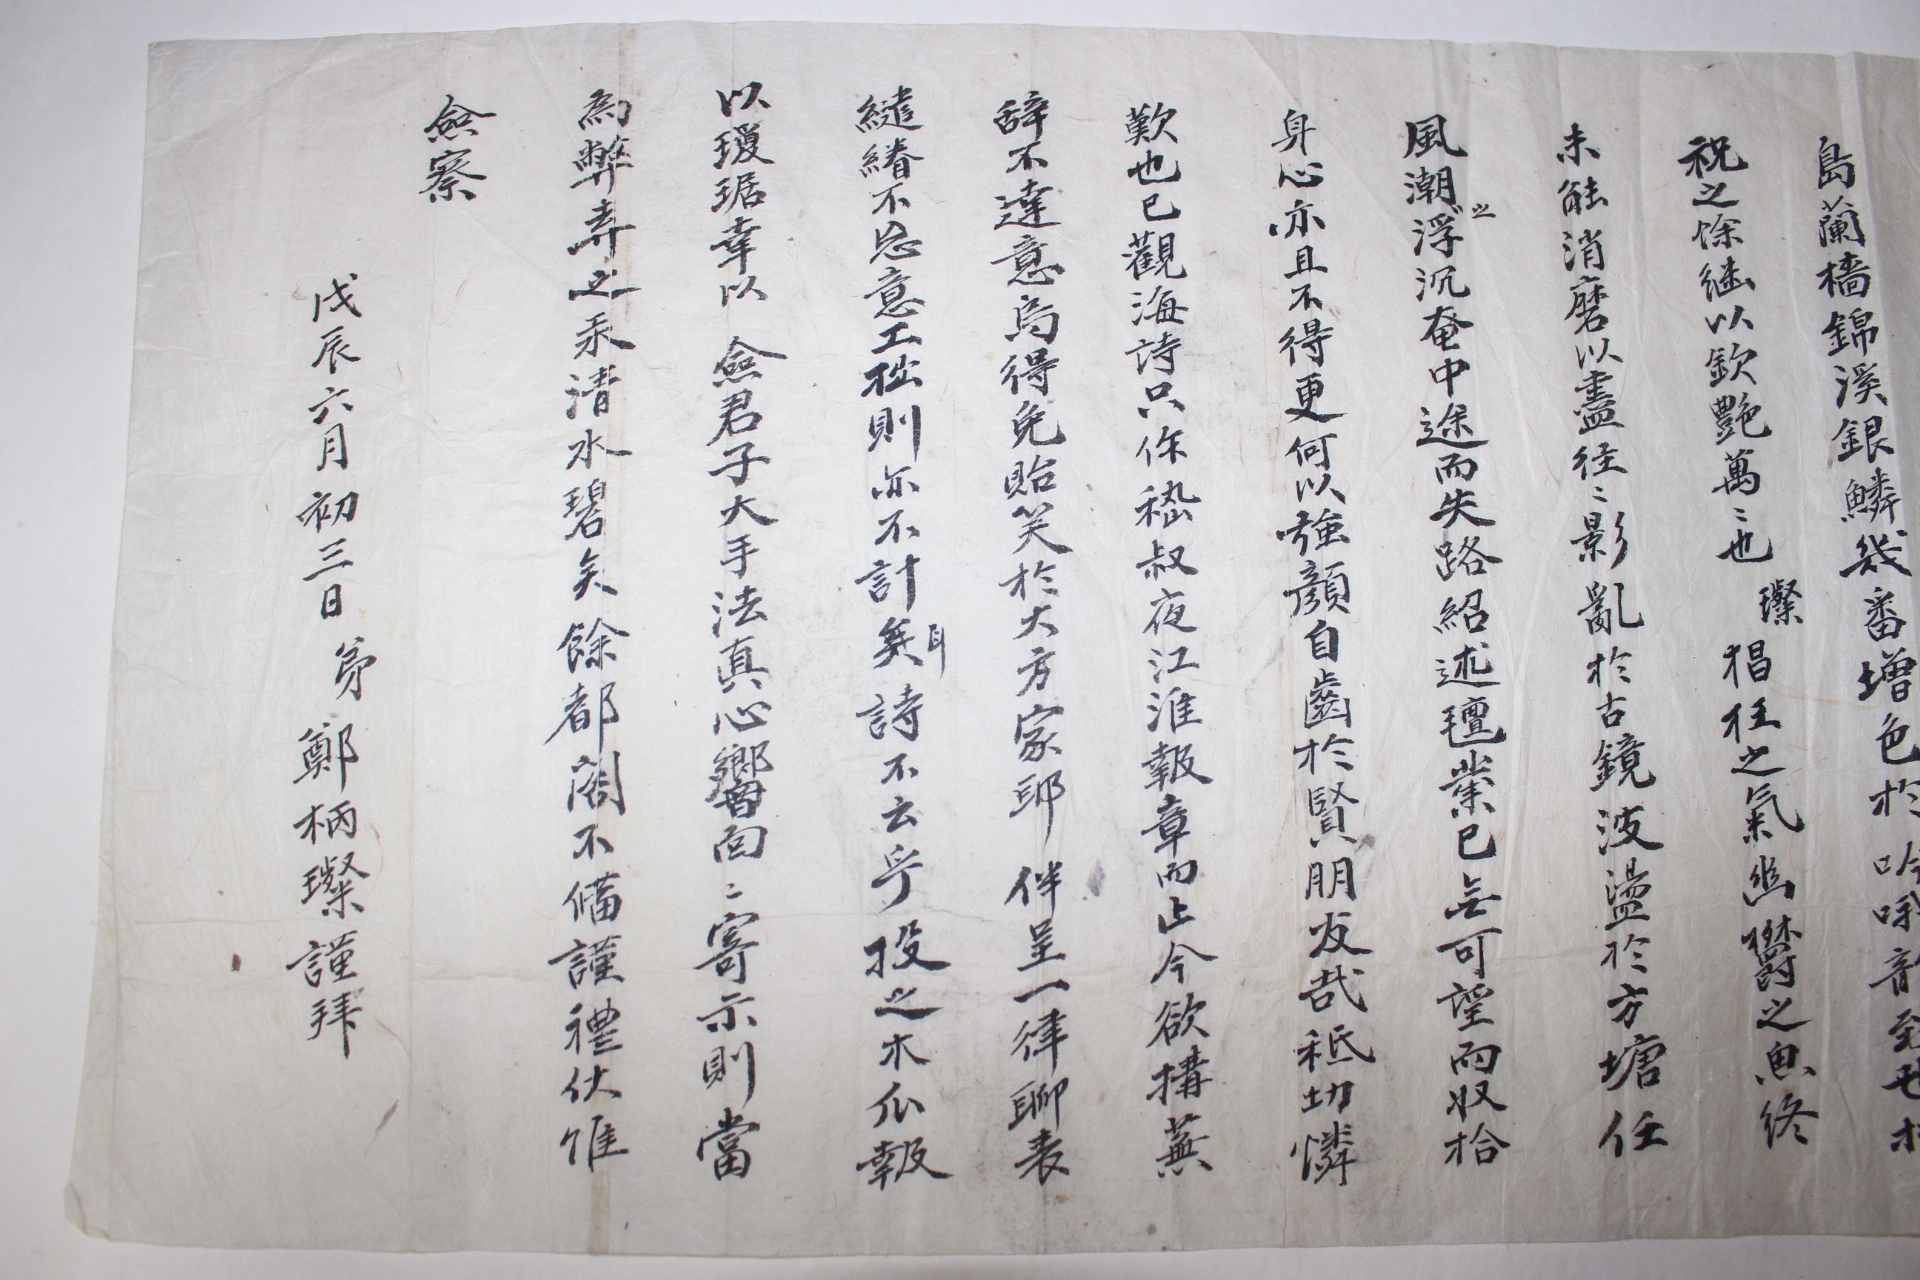 島蘭檣錦溪銀鱗幾番增色於吟
祝之餘継以欽艶萬〻也 璨猖狂之氣幽欝之思終
未能消磨以盡徃〻影亂於古鏡波盪於方塘任
風潮之浮沉奄中途而失路紹述氊業已無可望而収拾
身心亦且不得更何以強顔自齒於賢朋友哉秪切憐
歎也已觀海詩只作嵇叔夜江淮報章而止今欲搆蕪
辞不達意烏得免貽笑於大方家耶伴呈一律聊表
繾綣不忘意工拙則亦不計矣耳詩不云乎投之木瓜報
以瓊琚幸以 僉君子大手法真心嚮回〻寄示則當
為弊弄之汞清水碧矣餘都閣不備謹禮伏惟
僉察
戊辰六月初三日 弟鄭柄璨謹拜